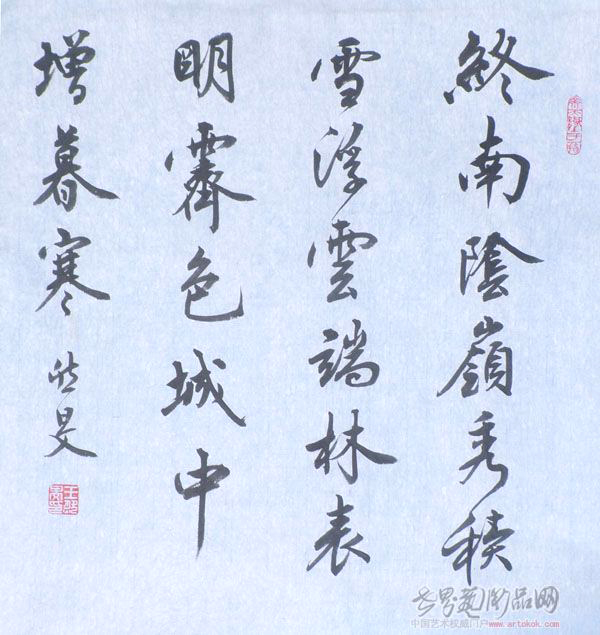 終南陰嶺秀積
雪浮雲端林表
明霽色城中
增暮寒
旻
世界藝術品网
中国艺术权威门户 www.artokok.com